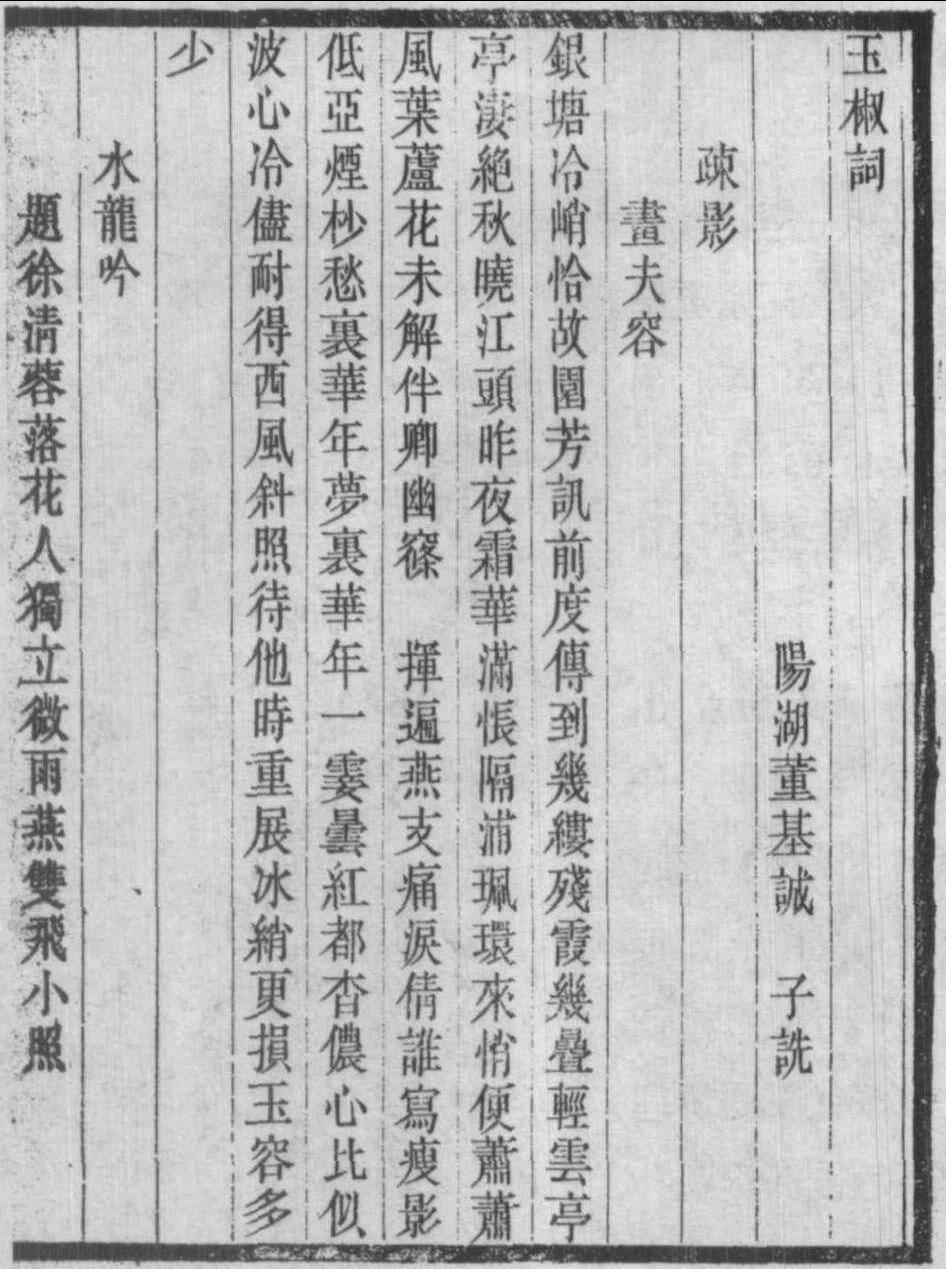 玉椒詞
陽湖董基誠　子詵
疎影
畫夫容
銀塘冷峭恰故園芳訊前度傳到幾縷殘霞幾疊輕雲亭
亭淒絶秋曉江頭昨夜霜華滿悵隔浦珮環來悄便蕭蕭
風葉蘆花未解伴卿幽窱　揮遍燕支痛淚倩誰寫瘦影
低亞煙杪愁裏華年夢裏華年一霎曇紅都杳儂心比似
波心冷儘耐得西風斜照待他時重展冰綃更損玉容多
少
水龍吟
題徐清蓉落花人獨立微雨燕雙飛小照